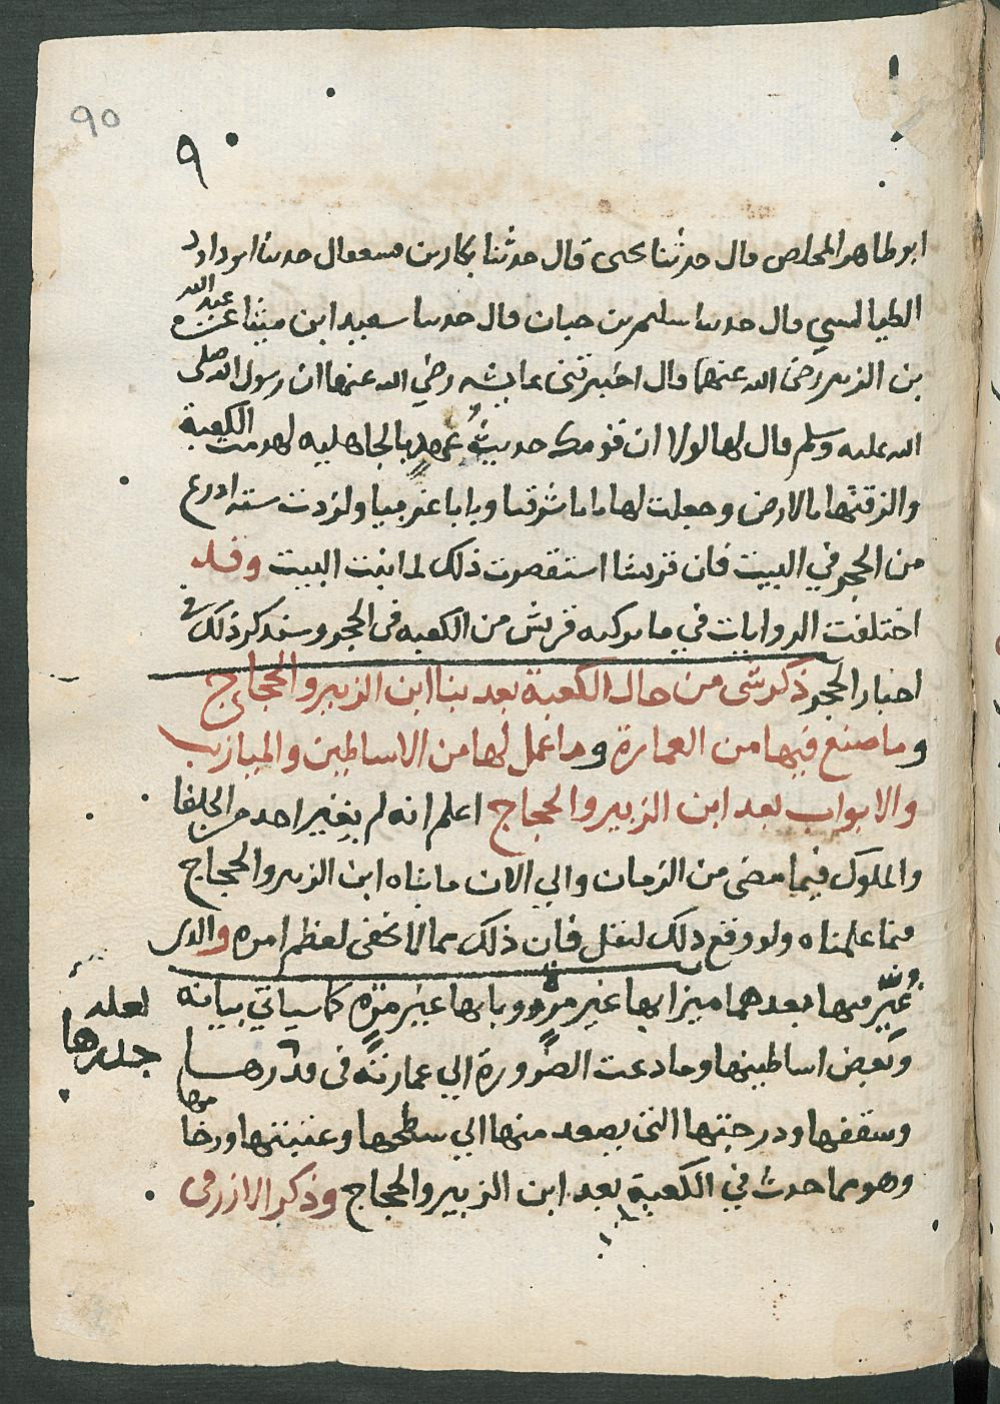 90
٩٠
ابو طاهر المخلص قال حدثنا يحيى قال حدثنا بكار بن قال حدثنا ابو داود
الطيالسي قال حدثنا سليم بن حيان قال حدثنا سعيد ابن مينا عن عبد الله
بن الزبير رضى الله عنهما قال اخبرتنى عايشه رضي الله عنها ان رسول الله صلى
الله عليه وسلم قال لها لولا ان قومك حديث عهد بالجاهليه لهدمت الكعبة
والزقتها بالارض وجعلت لها بابا شرقيا وبابا غربيا ولزدت ستة ادرع
من الحجر في البيت فان قريشا استقصرت ذلك لما بنت البيت وقد
اختلفت الروايات في ما تركته قريش من الكعبه فى الحجر وسنذكر ذلك في
اخبار الحجر ذكر شى من حال الكعبة بعد بنا ابن الزبير والحجاج
وما صنع فيها من العمارة وما عمل لها من الاساطين والميازيب
والابواب بعد ابن الزبير والحجاج اعلم انه لم يغير احد من الخلفا
والملوك فيما مضى من الزمان والي الان ما بناه ابن الزبير والحجاج
فيما علمناه ولو وقع ذلك لنقل فان ذلك مما لا يخفى لعظم امره والذى
غُيّر فيها بعدهما ميزابها غير مرة وبابها غير مرة كما سياتي بيانه
وبعض اساطينها وما دعت الضرورة الي عمارته فى قدرها
لعله
جدرها
وسقفها ودرجتها التى يصعد منها الي سطحها وعتبتها ورخامها
وهو مما حدث في الكعبة بعد ابن الزبير والحجاج وذكر الازرقى